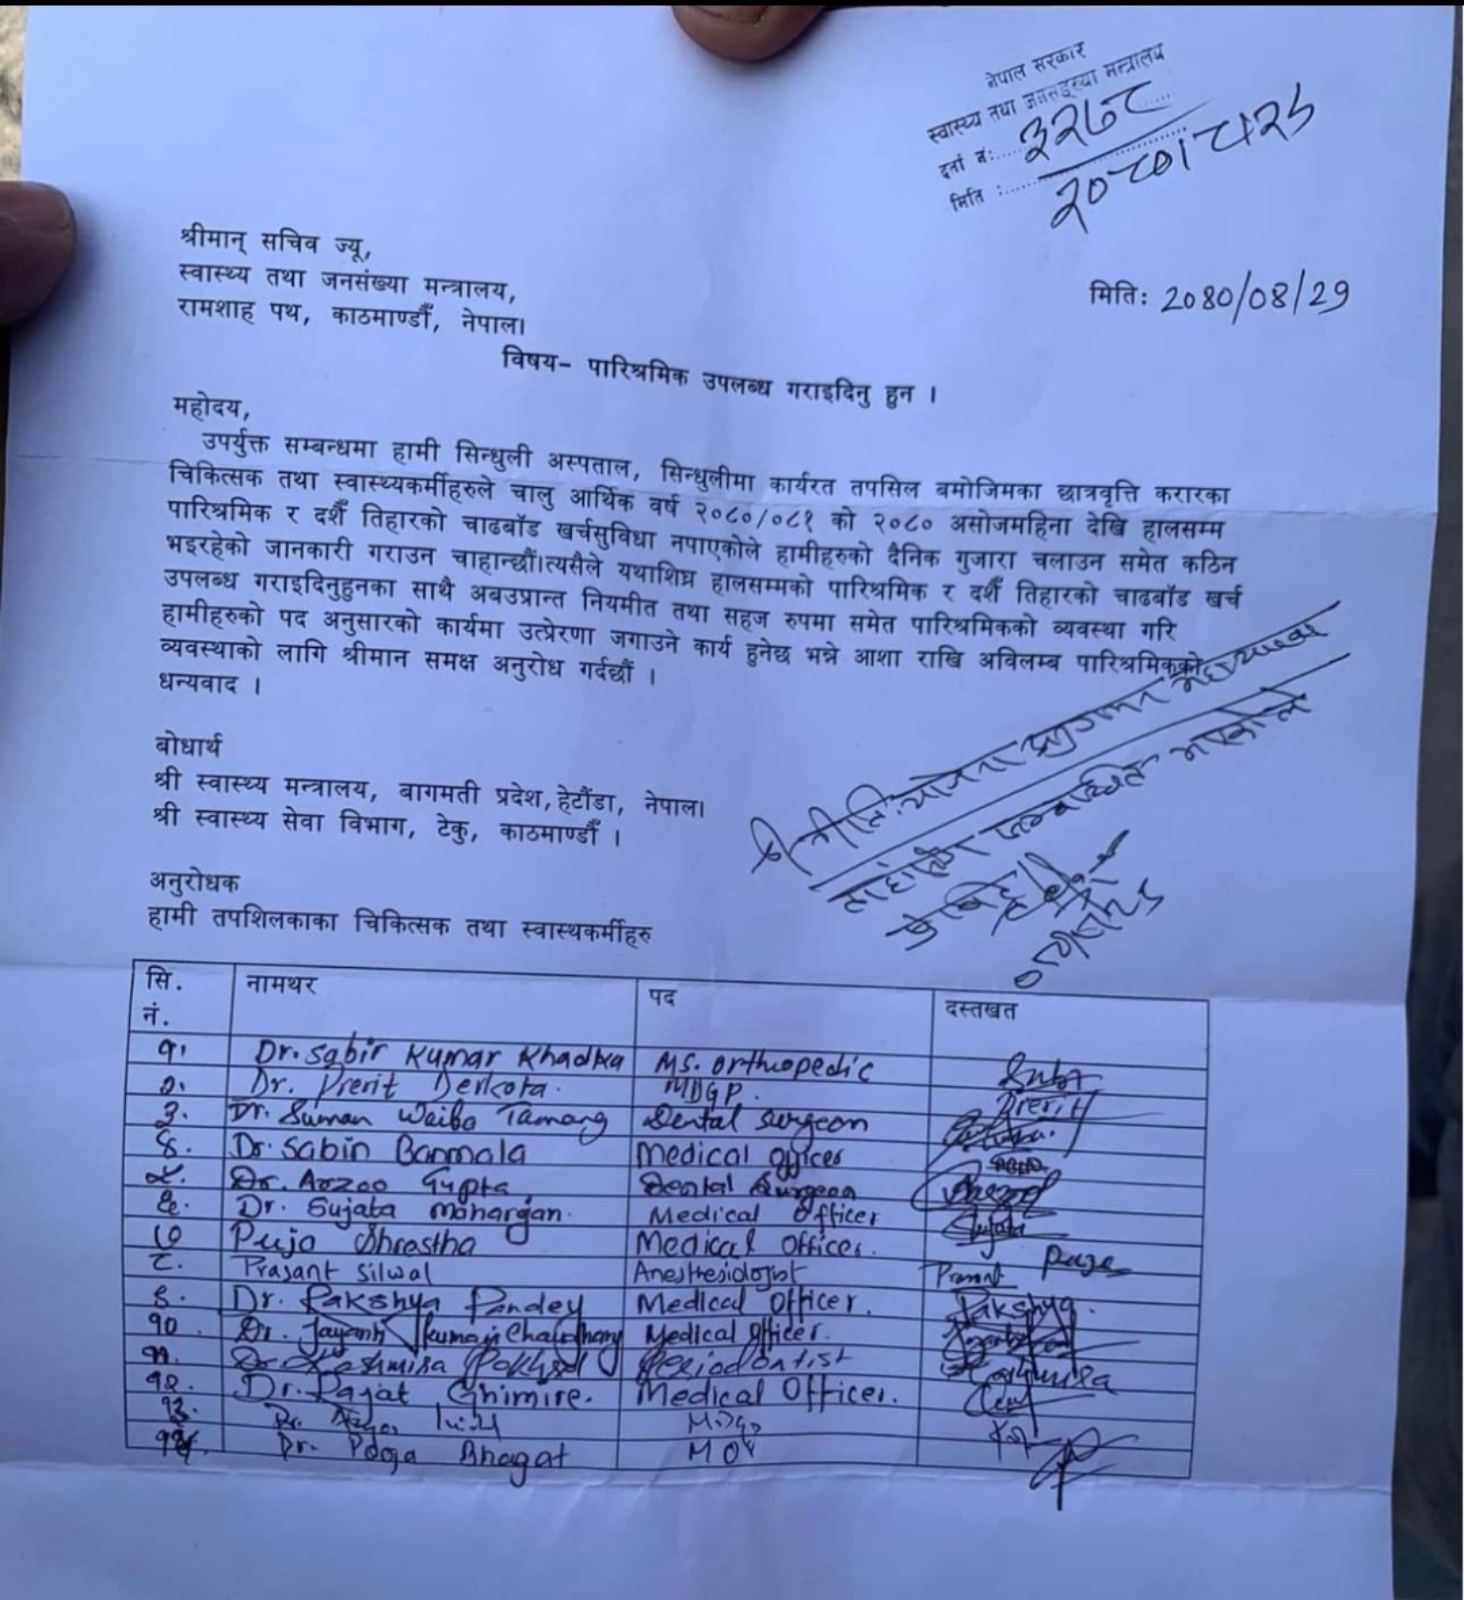 नेपाल सरकार
स्वास्थ्य तथा जनसङ्ख्या मन्त्रालय
दर्ता नं:..... ३२७८
मिति :..... २०८०।८।२९
श्रीमान् सचिव ज्यू,
स्वास्थ्य तथा जनसंख्या मन्त्रालय,
रामशाह पथ, काठमाण्डौँ, नेपाल।
मितिः 2080/08/29
विषय- पारिश्रमिक उपलब्ध गराइदिनु हुन ।
महोदय,
उपर्युक्त सम्बन्धमा हामी सिन्धुली अस्पताल, सिन्धुलीमा कार्यरत तपसिल बमोजिमका छात्रवृत्ति करारका
चिकित्सक तथा स्वास्थ्यकर्मीहरुले चालु आर्थिक वर्ष २०८०/०८१ को २०८० असोजमहिना देखि हालसम्म
पारिश्रमिक र दशैँ तिहारको चाढबाँड खर्चसुविधा नपाएकोले हामीहरुको दैनिक गुजारा चलाउन समेत कठिन
भइरहेको जानकारी गराउन चाहान्छौं।त्यसैले यथाशिघ्र हालसम्मको पारिश्रमिक र दशैँ तिहारको चाढबाँड खर्च
उपलब्ध गराइदिनुहुनका साथै अबउप्रान्त नियमीत तथा सहज रुपमा समेत पारिश्रमिकको व्यवस्था गरि
हामीहरुको पद अनुसारको कार्यमा उत्प्रेरणा जगाउने कार्य हुनेछ भन्ने आशा राखि अविलम्ब पारिश्रमिकको
व्यवस्थाको लागि श्रीमान समक्ष अनुरोध गर्दछौं ।
धन्यवाद ।
बोधार्थ
श्री स्वास्थ्य मन्त्रालय, बागमती प्रदेश,हेटौंडा, नेपाल।
श्री स्वास्थ्य सेवा विभाग, टेकु, काठमाण्डौँ ।
अनुरोधक
हामी तपशिलकाका चिकित्सक तथा स्वास्थकर्मीहरु
सि. नं. नामथर पद दस्तखत
१. Dr. Sabir Kumar Khadka MS. Orthopedic
२. Dr. Prerit Devkota. MDGP. Prerit
३. Dr. Suman Waiba Tamang Dental Surgeon
४. Dr. Sabin Banmala Medical officer
५. Dr. Aarzoo Gupta Dental Surgeon
६. Dr. Sujata Maharjan. Medical Officer
७ Puja Shrestha Medical Officer.
८. Prasant Silwal Anesthesiologist Prasant
९. Dr. Rakshya Pandey Medical Officer. Rakshya.
१०. Dr. Jayant Kumar Chaudhary Medical Officer.
११. Dr. Kashmira Pokhrel Periodontist
१२. Dr. Rajat Ghimire. Medical Officer.
१३. Dr.
१४. Dr. Pooja Bhagat MO